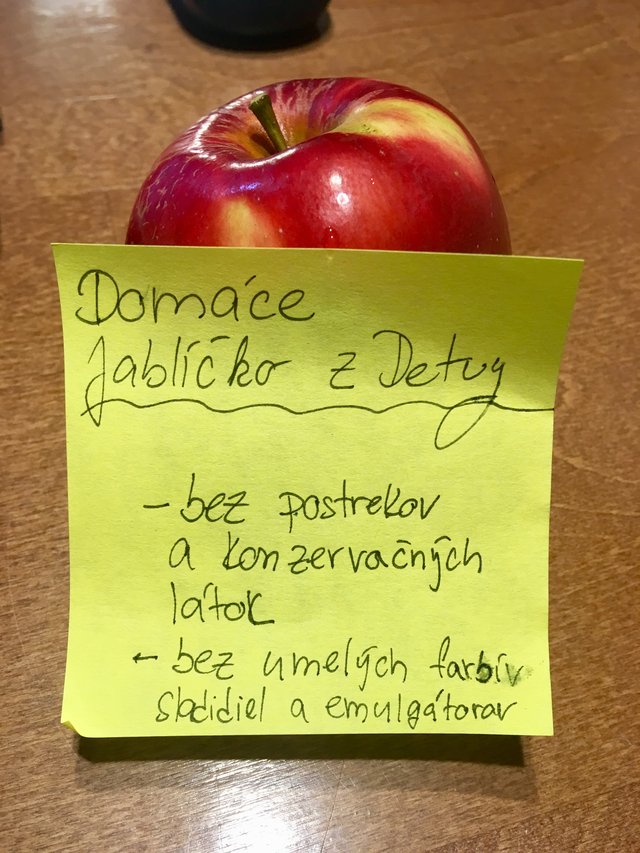 Domáce
Jablíčko z Detvy
- bez postrekov
a konzervačných
látok
- bez umelých farbív
sladidiel a emulgátorov